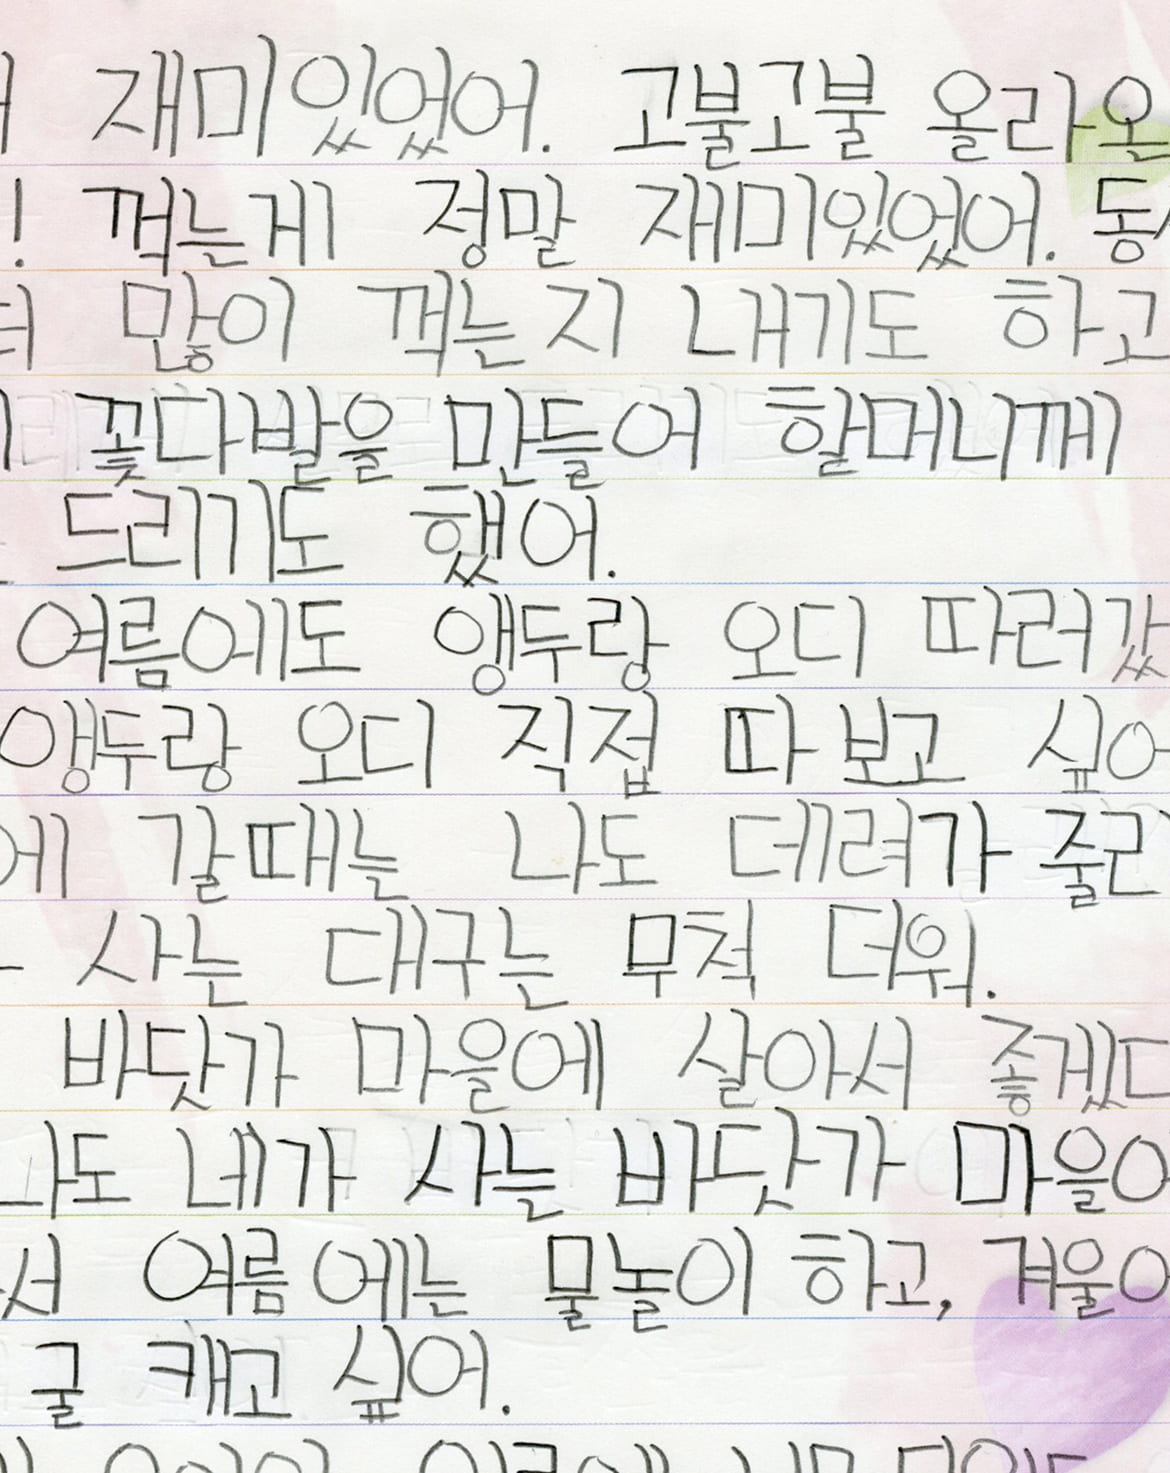 재미있었어. 고불고불 올라온
! 꺾는게 정말 재미있었어.
많이 꺾는지 내기도 하고
꽃다발을 만들어 할머니께
드리기도 했어.
여름에도 앵두랑 오디 따러갔
앵두랑 오디 직접 따 보고 싶어
에 갈때는 나도 데려가 줄래
사는 대구는 무척 더워.
바닷가 마을에 살아서 좋겠다
나도 네가 사는 바닷가 마을에
서 여름에는 물놀이 하고, 겨울에
굴 캐고 싶어.